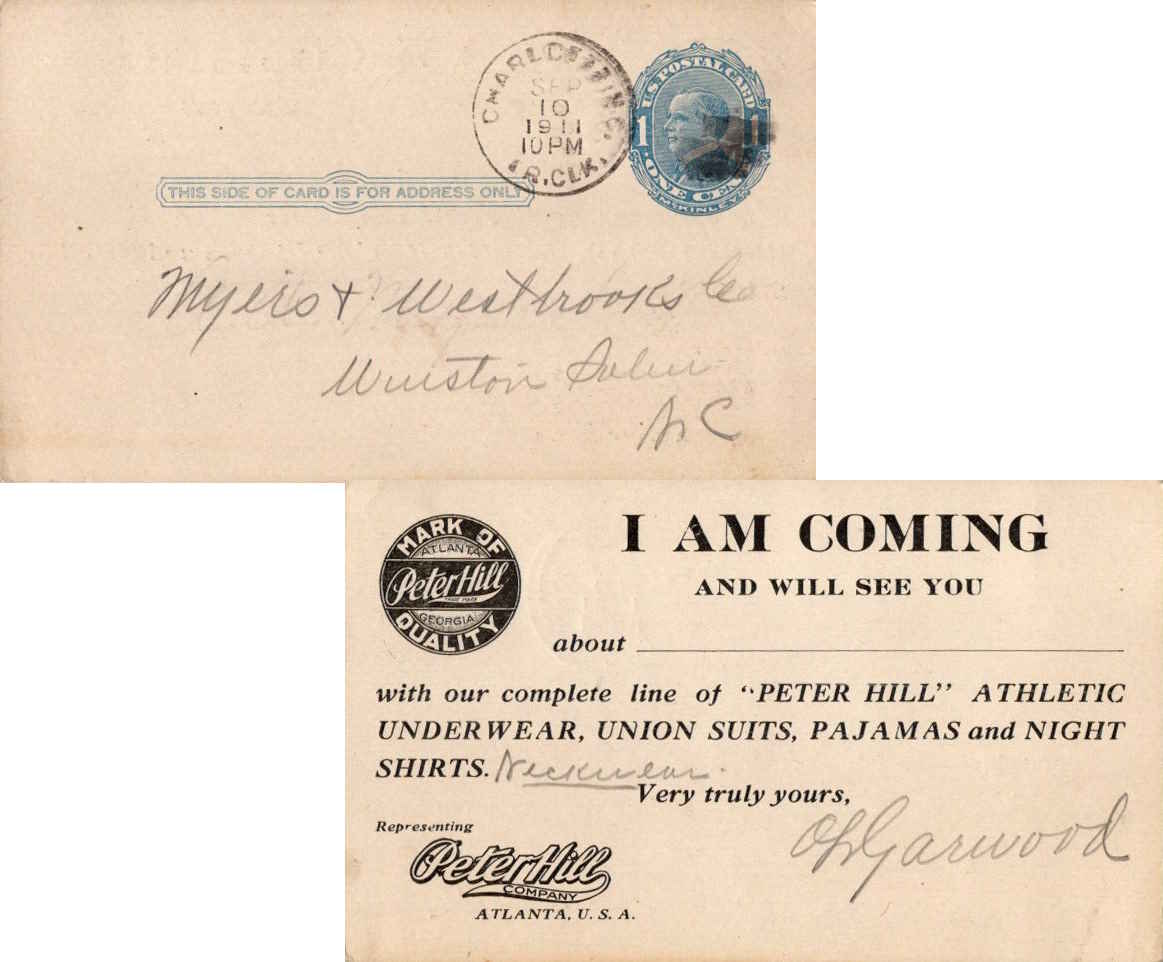 U.S. POSTAL CARD
1 1
ONE CENT
McKINLEY
SEP
10
1911
10 PM
R. CLK.
THIS SIDE OF CARD IS FOR ADDRESS ONLY
Myers & Westbrooks Co
Winston Salem
N C
MARK OF
ATLANTA
Peter Hill
TRADE MARK
GEORGIA
QUALITY
I AM COMING
AND WILL SEE YOU
about
with our complete line of "PETER HILL" ATHLETIC
UNDERWEAR, UNION SUITS, PAJAMAS and NIGHT
SHIRTS. Neckwear.
Very truly yours,
Garwood
Representing
Peter Hill
COMPANY
ATLANTA, U. S. A.